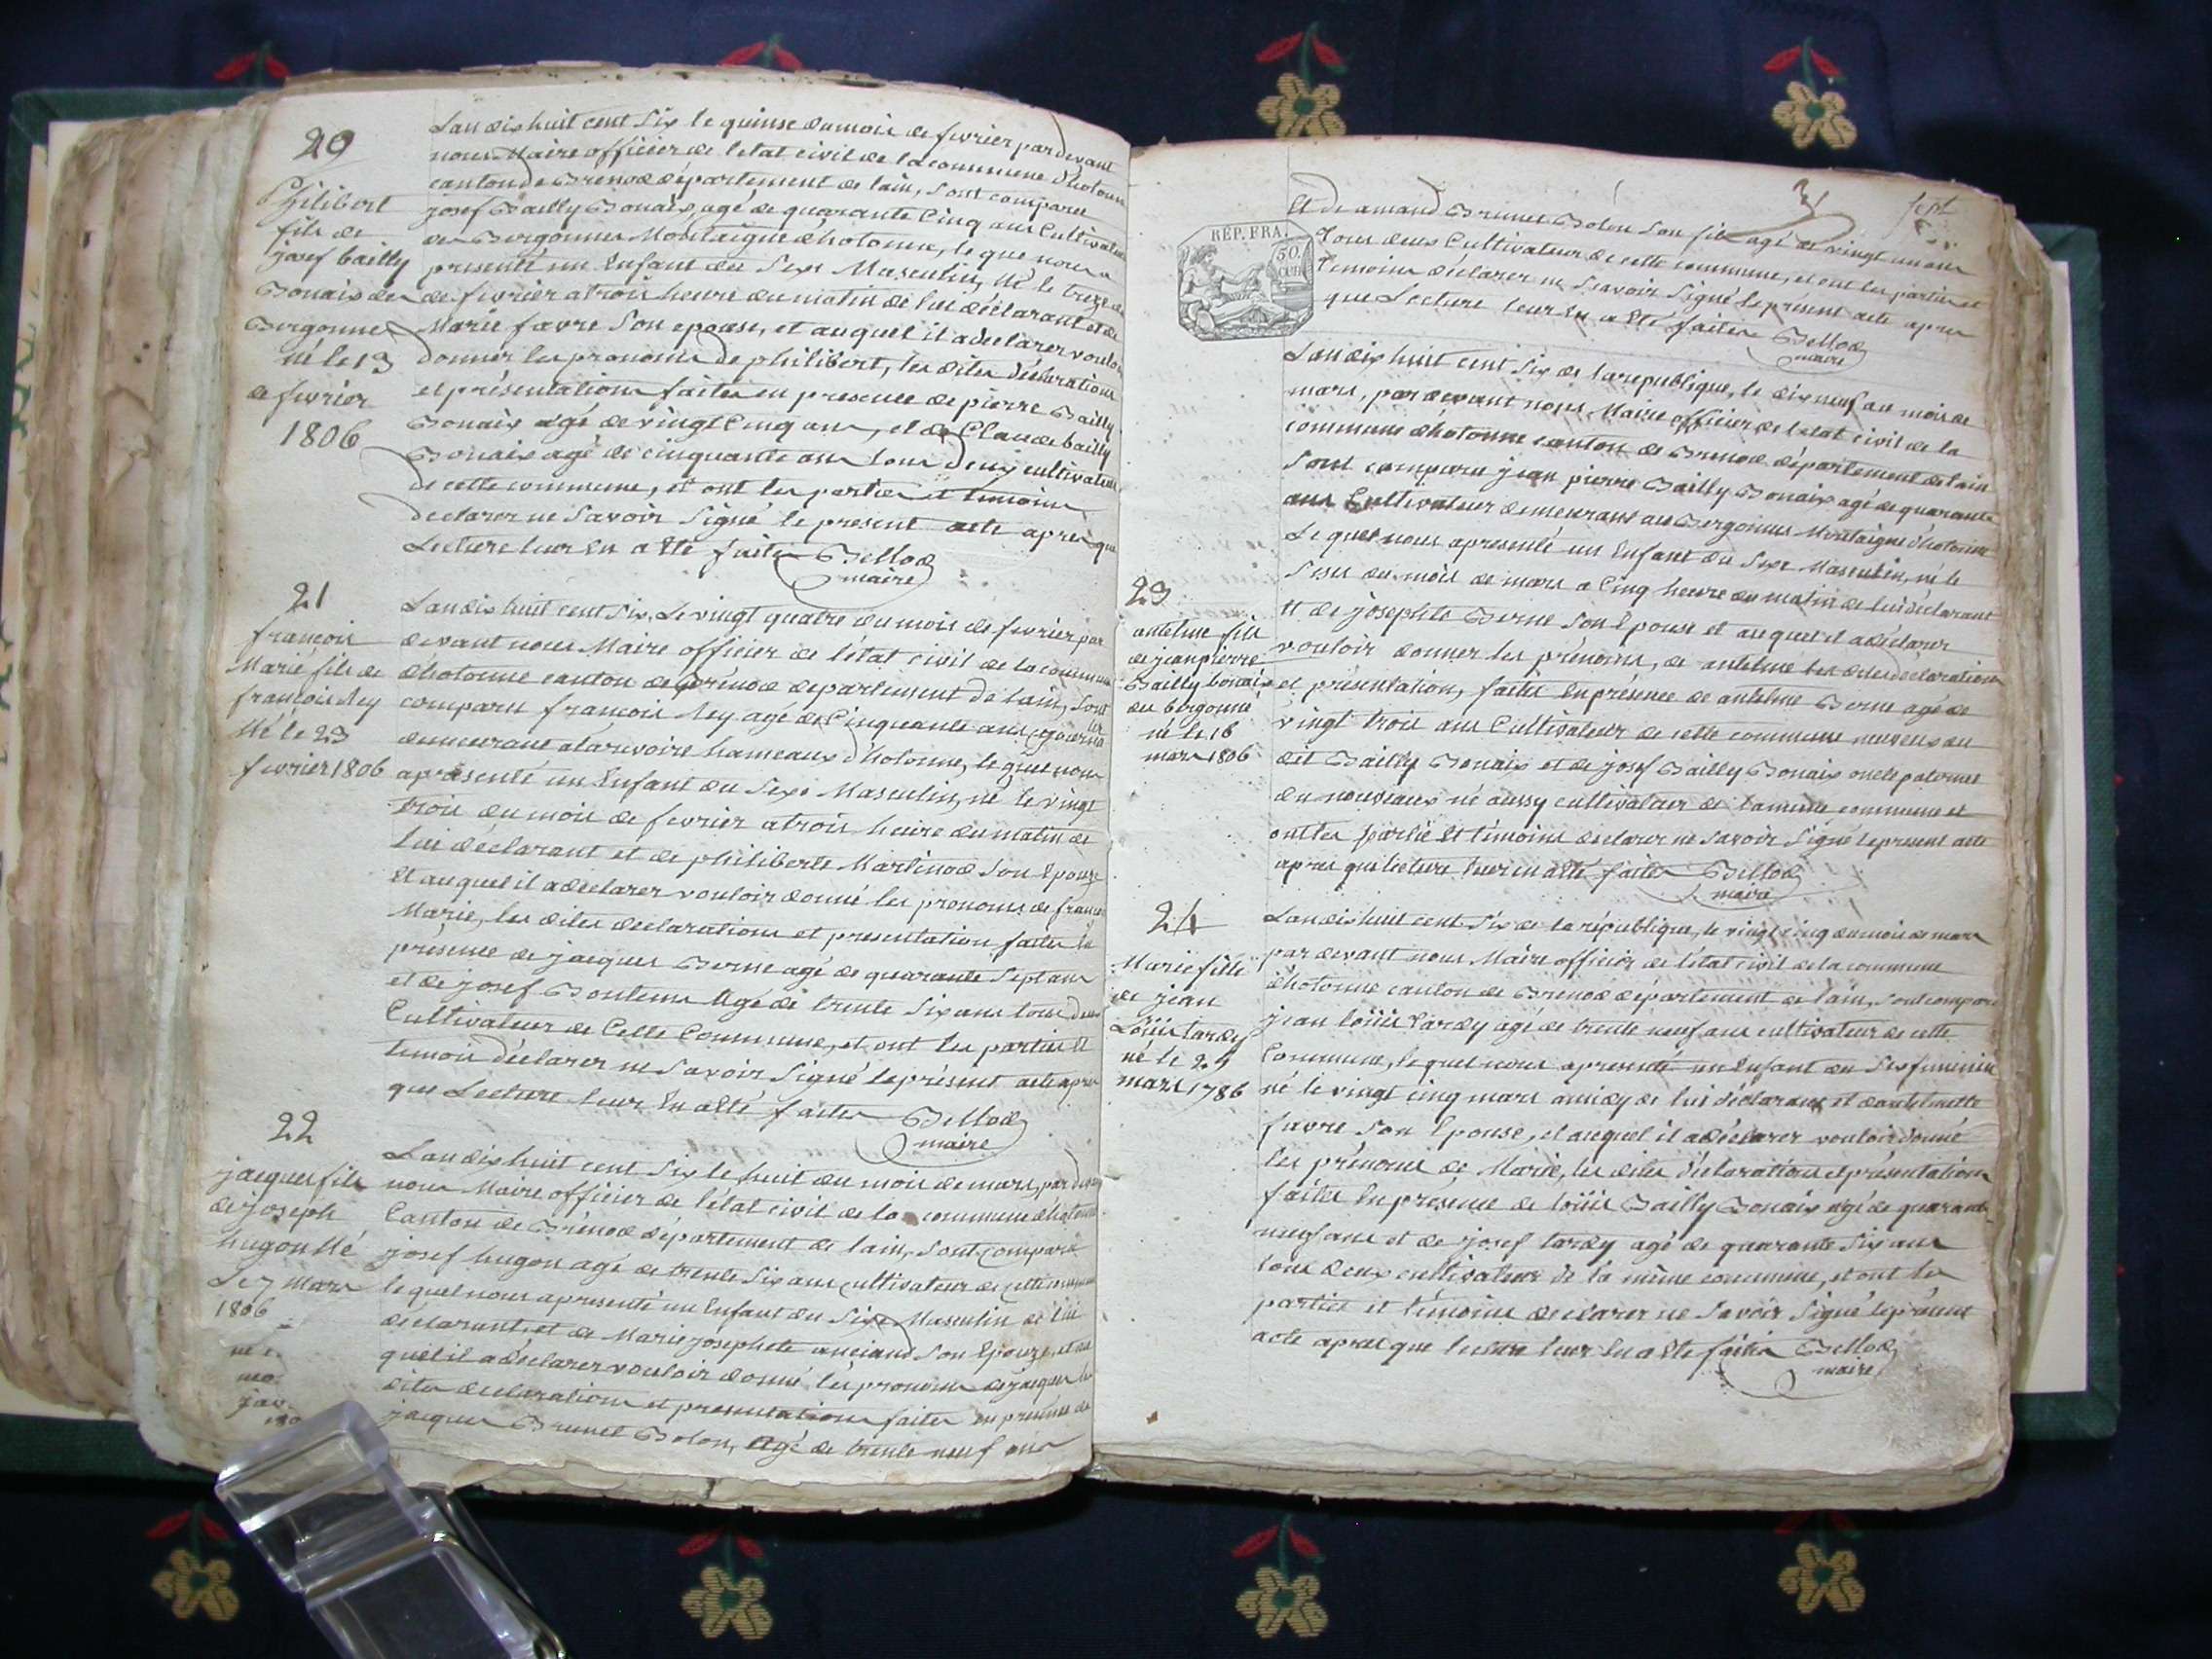 20
Philibert
fils de
josef bailly
Bonaix des
Bergonnes
né le 13
de fevrier
1806
Lan dix huit cent six le quinse du mois de fevrier par devant
nous Maire officier de letat civil de la commune d'hotonne
canton de Brenod département de lain, sont comparu
josef Bailly Bonaix, agé de quarante Cinq ans Cultivateur
des Bergonnes Montaigne d'hotonne, le que nous a
presenté un Enfant du Sexe Masculin, Né le treze
de fevrier a trois heure du matin de lui déclarant et de
Marie favre Son epouse, et auquel il a déclarer vouloir
donner les pronoms de philibert, les dites déclarations
et présentations faites en presence de pierre Bailly
Bonaix agé de vingt Cinq ans, et de Claude bailly
Bonaix agé de cinquante ans tous deux cultivateurs
de cette commune, et ont les parties et témoins
declarer ne Savoir Signé le present acte apres que
Lecture leur En a Eté faites Bellod
maire
21
francois
Marie fils de
francois Rey
Né le 23
fevrier 1806
Lan dix huit cent Six, Le vingt quatre du mois de fevrier par
devant nous Maire officier de létat civil de la commune
dhotonne canton de Brénod departement de lain, Sont
comparu francois Rey agé de Cinquante ans
demeurant a hameaux d'hotonne, le quel nous
a présenté un Enfant du Sexe Masculin, né le vingt
trois du mois de fevrier a trois heure du matin de
lui déclarant et de philiberte Martinod Son Epouze
Et auquel il a déclarer vouloir donné les pronoms de francois
Marie, les dites declarations et presentation faites En
présence de jacques Berne agé de quarante Sept ans
et de josef Bontems Agé de trente Six ans tous deux
Cultivateurs de Cette Commune, et ont les parties Et
temois déclarer ne Savoir Signé le présent acte apres
que Lecture leur En a Eté faites Bellod
maire
22
jacques fils
de joseph
hugon Né
Le 7 Mars
1806
Lan dix huit cent Six le huit du mois de mars, par devant
nous Maire officier de l'état civil de la commune dhotonne
Canton de Brénod département de lain, Sont comparu
josef hugon agé de trente Six ans cultivateur de cette commune
le quel nous a presenté un Enfant du Sixe Masculin de lui
déclarant, et de Marie josephete anciand Son Epouze, et au
quel il a déclarer vouloir donné les pronoms de jacques les
dites declarations et presentations faites en presence de
jacques Brunet Bolon, agé de trente neuf ans
31 sept
REP. FRA.
50.
Et de amand Brunet Bolon Son fils agé de vingt un ans
Tous deux Cultivateur de cette commune, et ont les parties et
Temoins déclarer ne Scavoir Signé le present acte apres
que Lecture leur En a Eté faites Bellod
maire
23
antelme fils
de jean pierre
Bailly bonaix
des bergonne
né le 16
mars 1806
Lan dix huit cent Six de la republique, le dix neuf du mois de
mars, par devant nous Maire officier de l'etat civil de la
commune dhotonne canton de Brenod département de lain
Sont comparu jean pierre Bailly Bonaix agé de quarante
ans Cultivateur demeurant au Bergonnes Montaigne d'hotonne
Le quel nous a presenté un Enfant du Sexe Masculin, né le
Sese du mois de mars a Cinq heure du matin de lui déclarant
Et de josephte Berne Son Epouse et auquel il a déclarer
vouloir donner les prénoms, de antelme les dites déclarations
et présentation, faites En présence de antelme Berne agé de
vingt trois ans Cultivateur de cette commune neveux du
dit Bailly Bonaix et de josef Bailly Bonaix oncle paternel
du nouveaux né aussy cultivateur de la meme commune et
ont les partie Et témoins declarer ne Savoir Signé le present acte
apres que lecture leur en a Eté faites Bellod
maire
24
Marie fille
de jean
Loüis tardy
né le 25
mars 1786
Lan dix huit cent Six de la république, le vingt cinq du mois de mars
par devant nous Maire officier de l'état civil de la commune
d'hotonne canton de Brenod département de lain, Sont comparu
jean loüis tardy agé de trente neuf ans cultivateur de cette
Commune, le quel nous a presenté un Enfant du Sexe feminin
né le vingt cinq mars a midy de lui déclarant et dantelmette
favre Son Epouse, et auquel il a déclarer vouloir donné
les prénoms de Marie, les dites déclarations et présentations
faites En présence de loüis Bailly Bonaix agé de quarante
neuf ans et de josef tardy agé de quarante Six ans
tous deux cultivateurs de la même commune, et ont les
parties et témoins declarer ne Savoir Signé le présent
acte apres que lecture leur En a Eté faites Bellod
maire